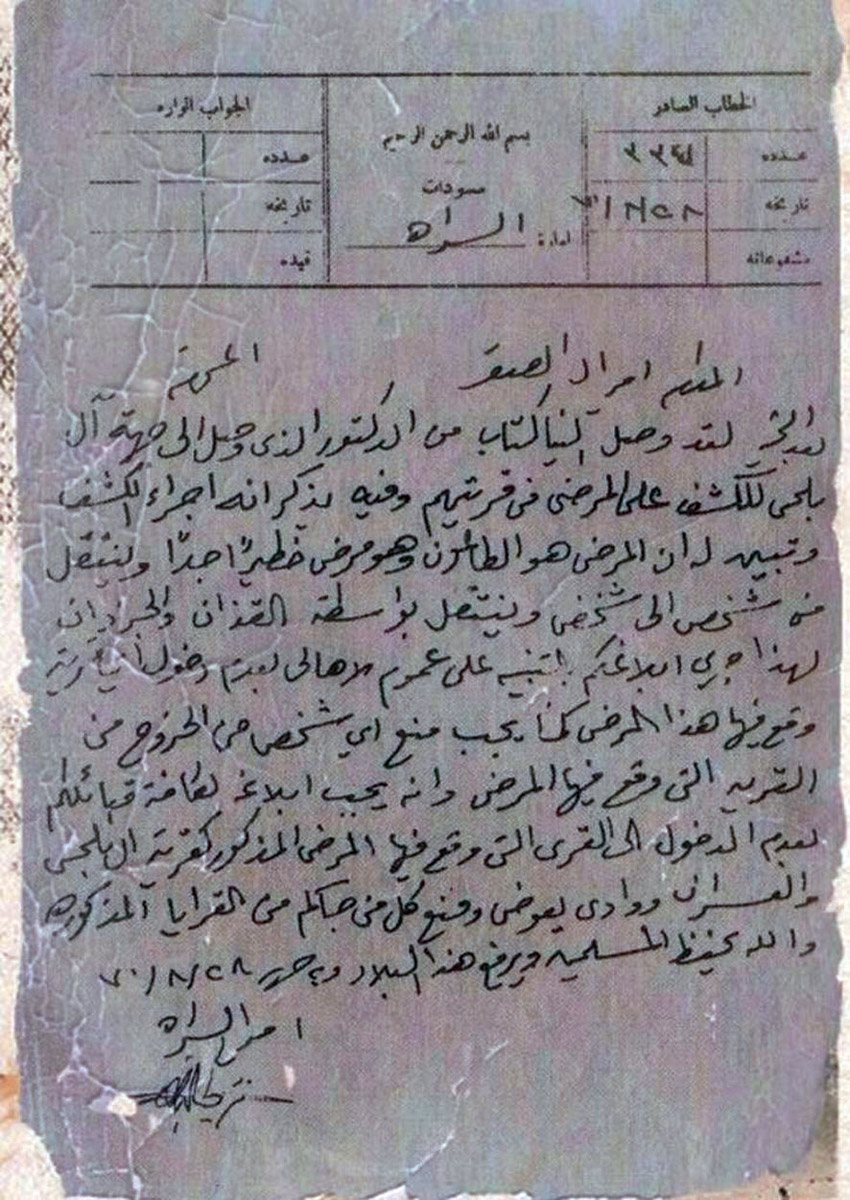 الخطاب الصادر
عدده
تاريخه ٢٨/٨/٧٠
مشفوعاته
بسم الله الرحمن الرحيم
مسودات
امارة السراه
الجواب الوارد
عدده
تاريخه
قيده
المكرم امراد الصقر المحترم
بعد التحية لقد وصل الينا كتاب من الدكتور الذي وصل الى جهة آل
بلحى للكشف على المرضى في قريتهم وفيه يذكر انه اجراء الكشف
وتبين له ان المرض هو الطاعون وهو مرض خطيرًا جدًا وينتقل
من شخص الى شخص وينتقل بواسطة القذان والجردان
لهذا جرى ابلاغكم بالتنبيه على عموم الاهالى بعدم دخول اي قرية
وقع فيها هذا المرض كما يجب منع اي شخص من الخروج من
القريه التى وقع فيها المرض وانه يجب ابلاغ لكافة قبائلكم
بعدم الدخول الى القرى التى وقع فيها المرض المذكور كقرية ال بلحى
والعسران ووادى يعوض ومنع كل من جاكم من القرايا المذكوره
والله يحفظ المسلمين ويرفع هذا البلاء ٢٨/٨/٧٠
امير السراه
تركي